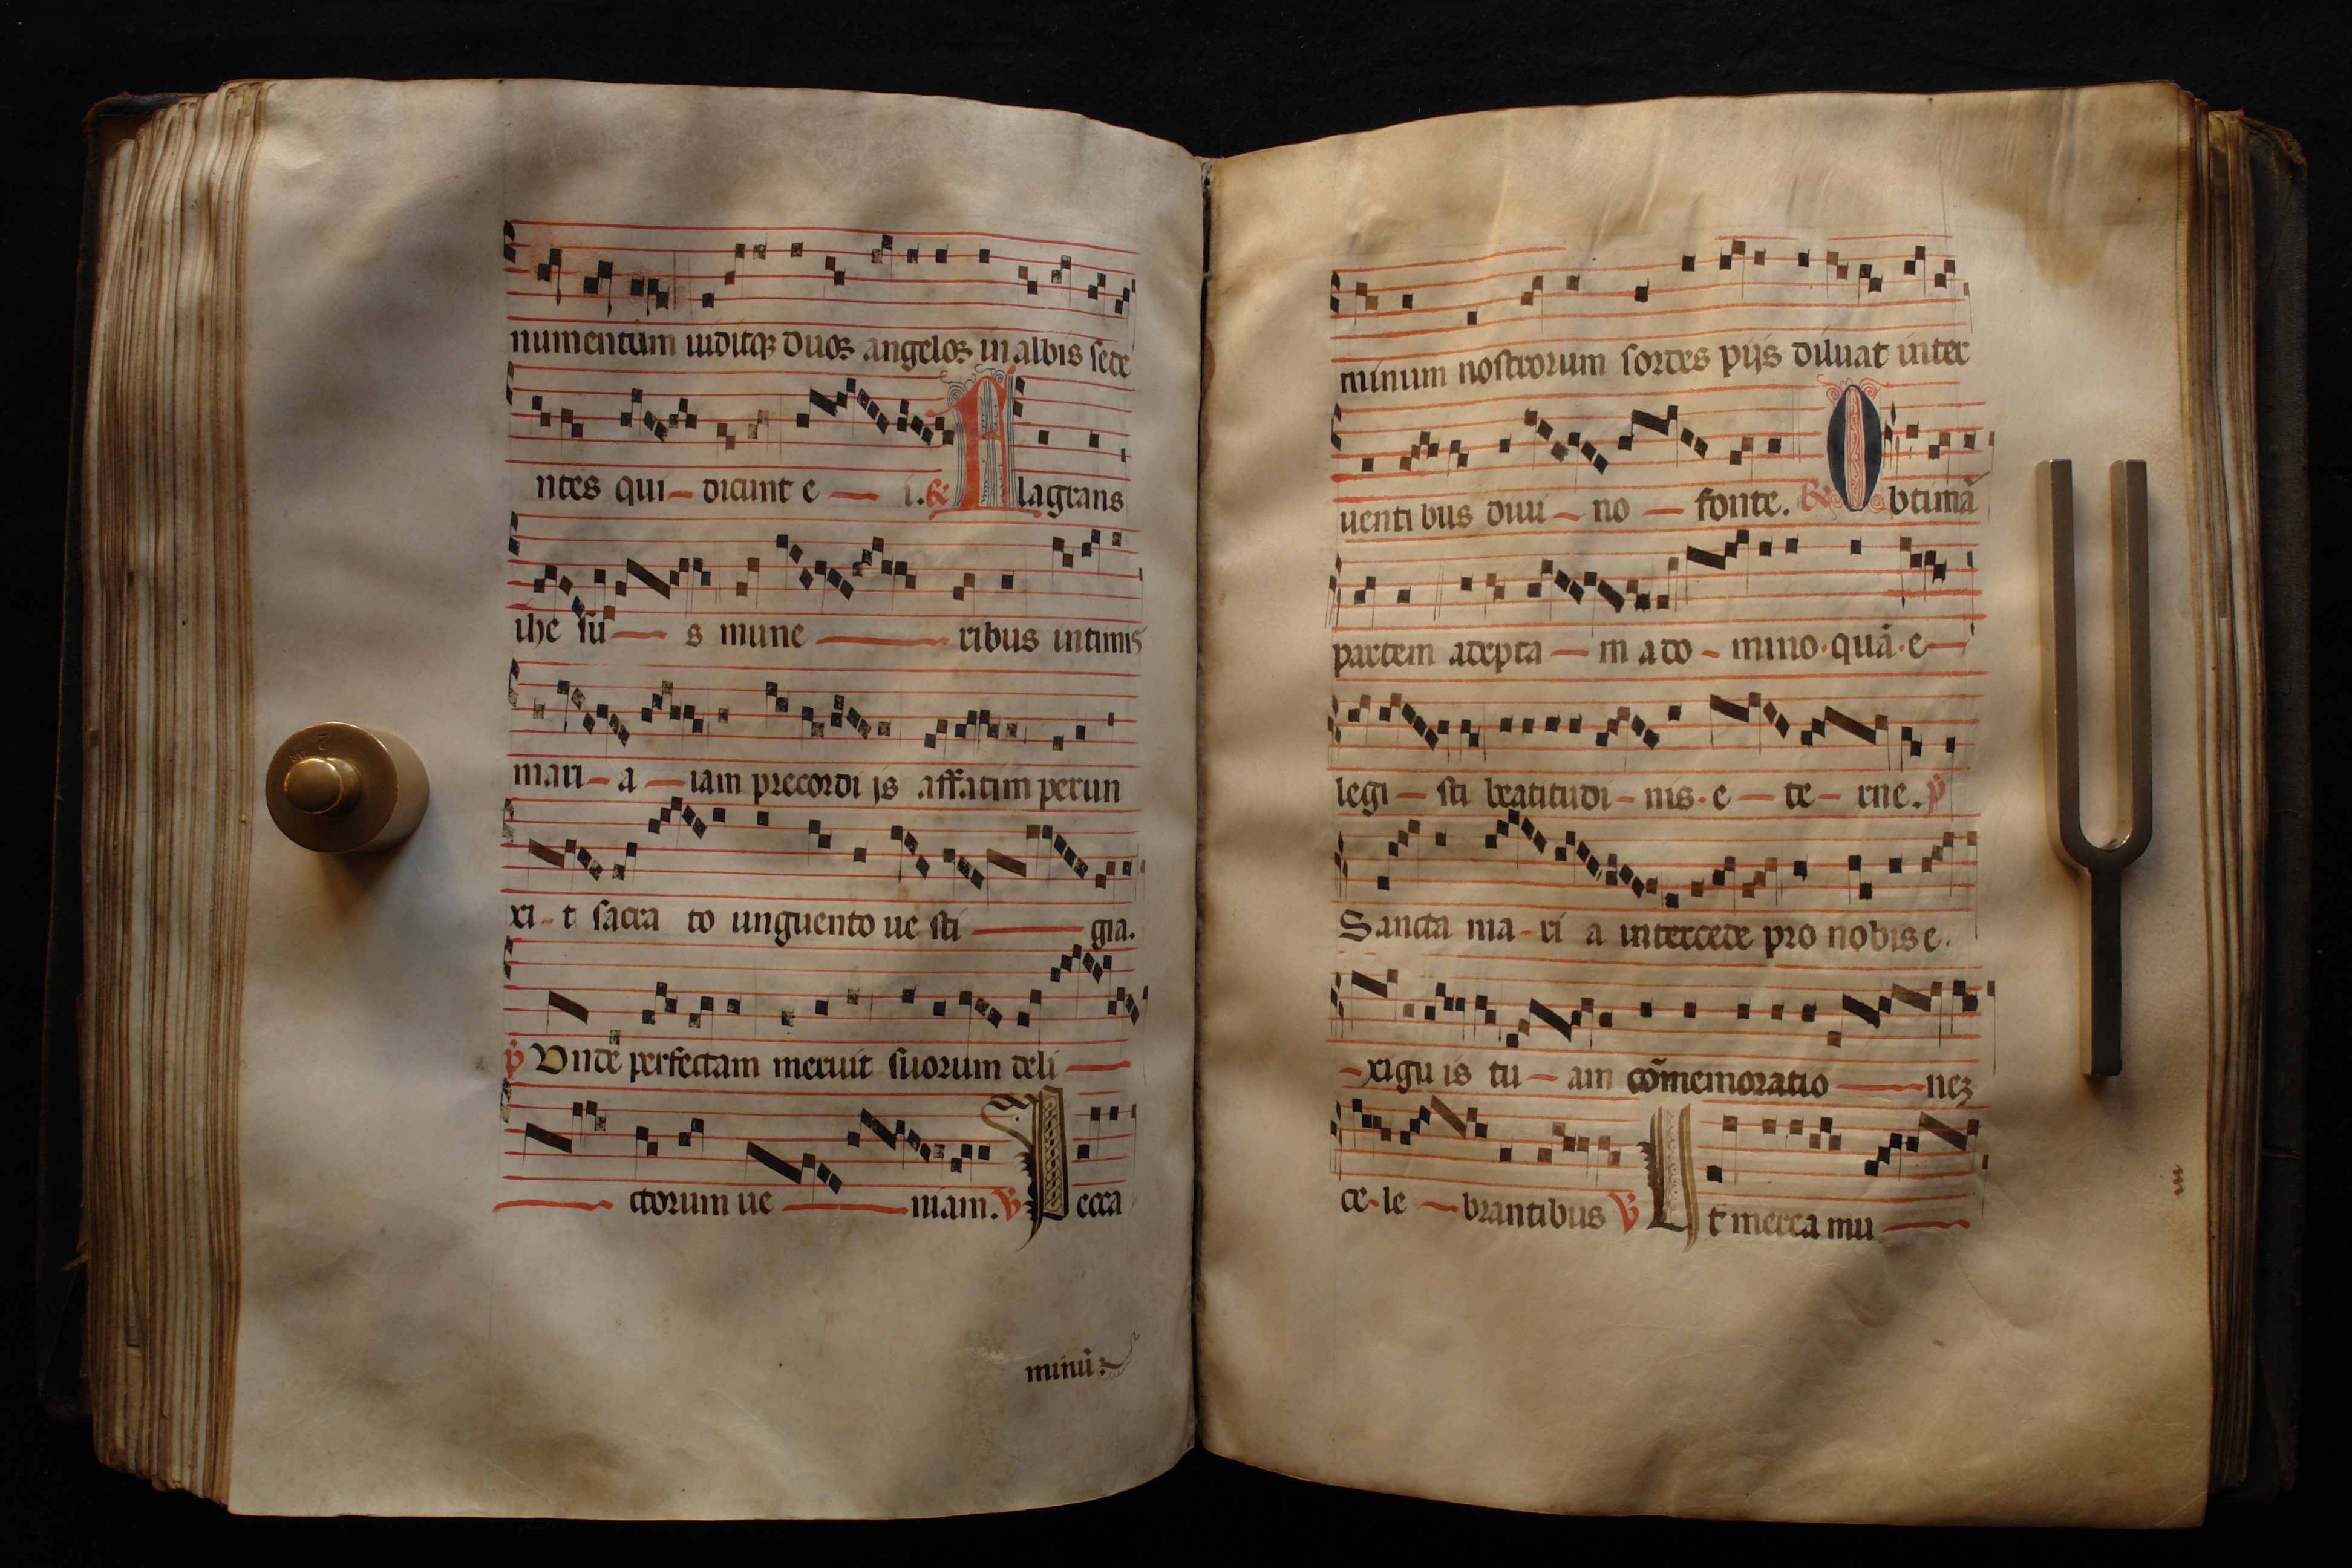 numentum uiditqꝫ duos angelos in albis sede
ntes qui – dicunt e — i. ℟ Flagrans
ihe su — s mune — ribus intimis
mari – a — iam precordi is affatim perun
xi – t sacra to unguento ue sti — gia.
p̄ Unde perfectam meruit suorum deli —
— ctorum ue — niam. ℣ Pecca
minū:
minum nostrorum sordes pijs diluat inter
uenti bus diui – no — fonte. ℟ Obtimā
partem adepta — m a do – mino · quā · e —
legi — sti beatitudi – nis · e — te – rne. p̄
Sancta ma – ri a intercede pro nobis e ·
– xigu is tu – am cōmemoratio — neꝫ
ce – le – brantibus ℣ Ut merea mu —
2